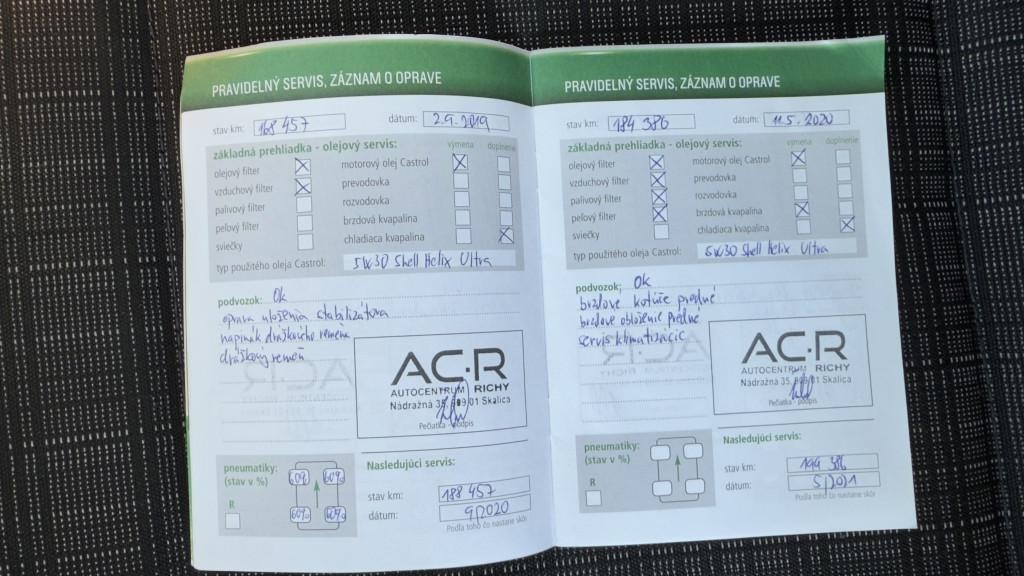 PRAVIDELNÝ SERVIS, ZÁZNAM O OPRAVE
stav km: 168 457 dátum: 2.9.2019
základná prehliadka - olejový servis: výmena doplnenie
olejový filter motorový olej Castrol
vzduchový filter prevodovka
palivový filter rozvodovka
peľový filter brzdová kvapalina
sviečky chladiaca kvapalina
typ použitého oleja Castrol: 5W30 Shell Helix Ultra
podvozok: Ok
oprava uloženia stabilizátora
napinák drážkového remeňa
drážkový remeň
AC·R
AUTOCENTRUM RICHY
Nádražná 35, 909 01 Skalica
Pečiatka - podpis
pneumatiky:
(stav v %)
60% 60%
R
60% 60%
Nasledujúci servis:
stav km: 188 457
dátum: 9/2020
Podľa toho čo nastane skôr
PRAVIDELNÝ SERVIS, ZÁZNAM O OPRAVE
stav km: 184 386 dátum: 11.5.2020
základná prehliadka - olejový servis: výmena doplnenie
olejový filter motorový olej Castrol
vzduchový filter prevodovka
palivový filter rozvodovka
peľový filter brzdová kvapalina
sviečky chladiaca kvapalina
typ použitého oleja Castrol: 5W30 Shell Helix Ultra
podvozok: Ok
brzdove kotúče predné
brzdove obloženie predne
servis klimatizácie
AC·R
AUTOCENTRUM RICHY
Nádražná 35, 909 01 Skalica
Pečiatka - podpis
pneumatiky:
(stav v %)
R
Nasledujúci servis:
stav km: 199 386
dátum: 5/2021
Podľa toho čo nastane skôr